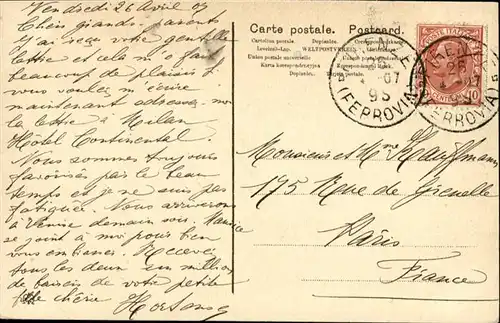 Vendredi 26 Avril 07
Chers grands-parents
J'ai reçu votre gentille
lettre et cela m'a fait
beaucoup de plaisir si
vous voulez m'écrire
maintenant adressez-moi
la lettre à Milan
Hôtel Continental
Nous sommes toujours
favorisés par le beau
temps et je ne suis pas
fatiguée. Nous arriverons
à Venise demain soir. Maurice
se joint à moi pour bien
vous embrasser. Recevez
tous les deux un million
de baisers de votre petite
fille chérie Hortense
Carte postale. Postcard.
Cartolina postale. Dopisnice. Correspondenzkarte.
Levelezö-Lap. WELTPOSTVEREIN
Union postale universelle.
Karta korespondencyjna
Dopisnice.
POSTE ITALIANE
CENTESIMI 10
07
9 S
(FERROVIA)
FIRENZE
(FERROVIA)
Monsieur et Mme Kauffmann
175 Rue de Grenelle
Paris
France